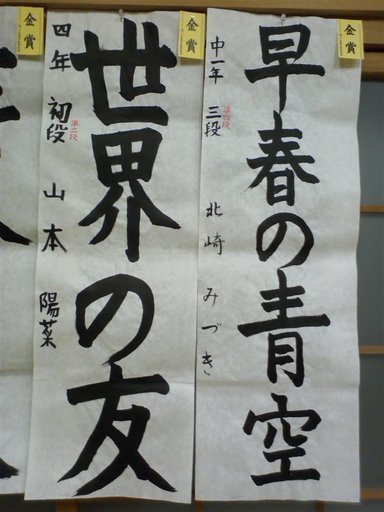 金賞
早春の青空
中一年 三段 北崎 みづき
準四段
金賞
世界の友
四年 初段 山本 陽菜
準二段
金賞